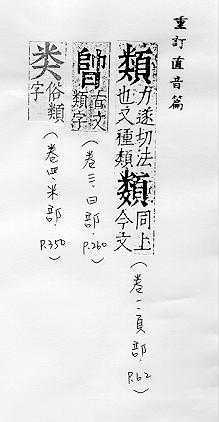 重訂直音篇
類 力遂切法也又種類 類 同上今文 (卷一·頁部·P.62)
古文類字 (卷三·部·P.260)
类 俗類字 (卷四·米部·P.350)